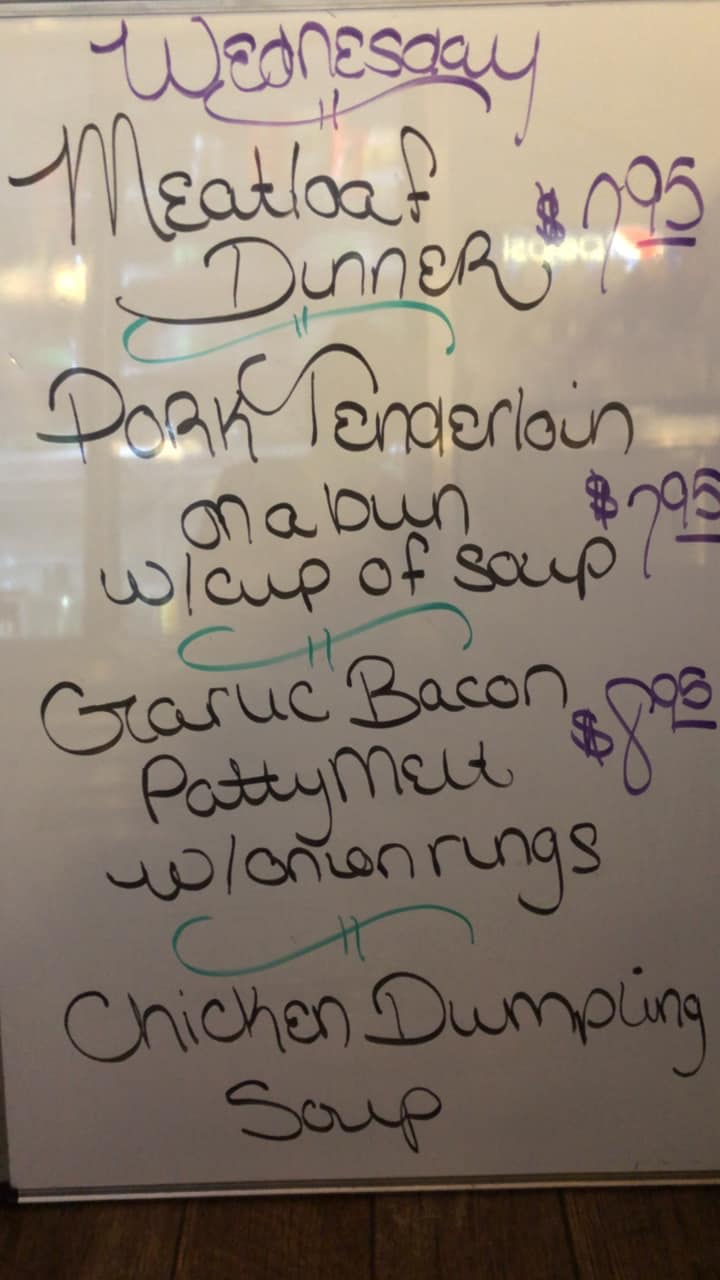 Wednesday
Meatloaf
Dinner $7.95
Pork Tenderloin
on a bun $7.95
w/cup of soup
Garlic Bacon $8.95
Patty Melt
w/onion rings
Chicken Dumpling
Soup